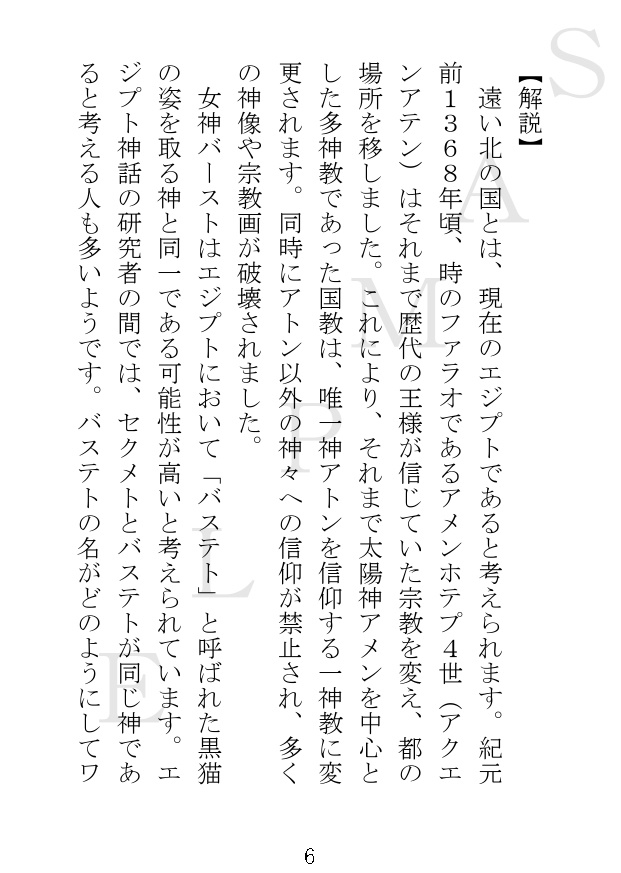 【解説】
　遠い北の国とは、現在のエジプトであると考えられます。紀元
前１３６８年頃、時のファラオであるアメンホテプ４世（アクエ
ンアテン）はそれまで歴代の王様が信じていた宗教を変え、都の
場所を移しました。これにより、それまで太陽神アメンを中心と
した多神教であった国教は、唯一神アトンを信仰する一神教に変
更されます。同時にアトン以外の神々への信仰が禁止され、多く
の神像や宗教画が破壊されました。
　女神バーストはエジプトにおいて「バステト」と呼ばれた黒猫
の姿を取る神と同一である可能性が高いと考えられています。エ
ジプト神話の研究者の間では、セクメトとバステトが同じ神であ
ると考える人も多いようです。バステトの名がどのようにしてワ
6
SAMPLE